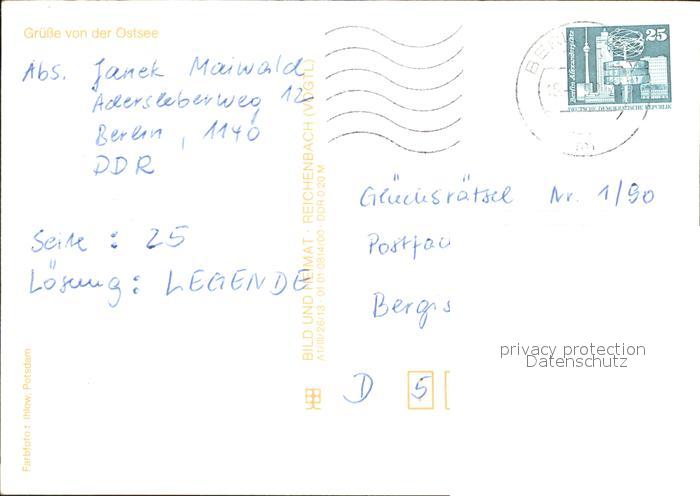 Grüße von der Ostsee
Abs. Janek Maiwald
Adersleberweg 12
Berlin, 1140
DDR
Seite: 25
Lösung: LEGENDE
Farbfoto: Ihlow, Potsdam
BILD UND HEIMAT · REICHENBACH (VOGTL)
A1/III/26/13 01 01 0814/00 DDR 0,20 M
BER
25
Berlin, Alexanderplatz
DEUTSCHE DEMOKRATISCHE REPUBLIK
Glücksrätsel Nr. 1/90
Postfac
Bergs
D 5
privacy protection
Datenschutz